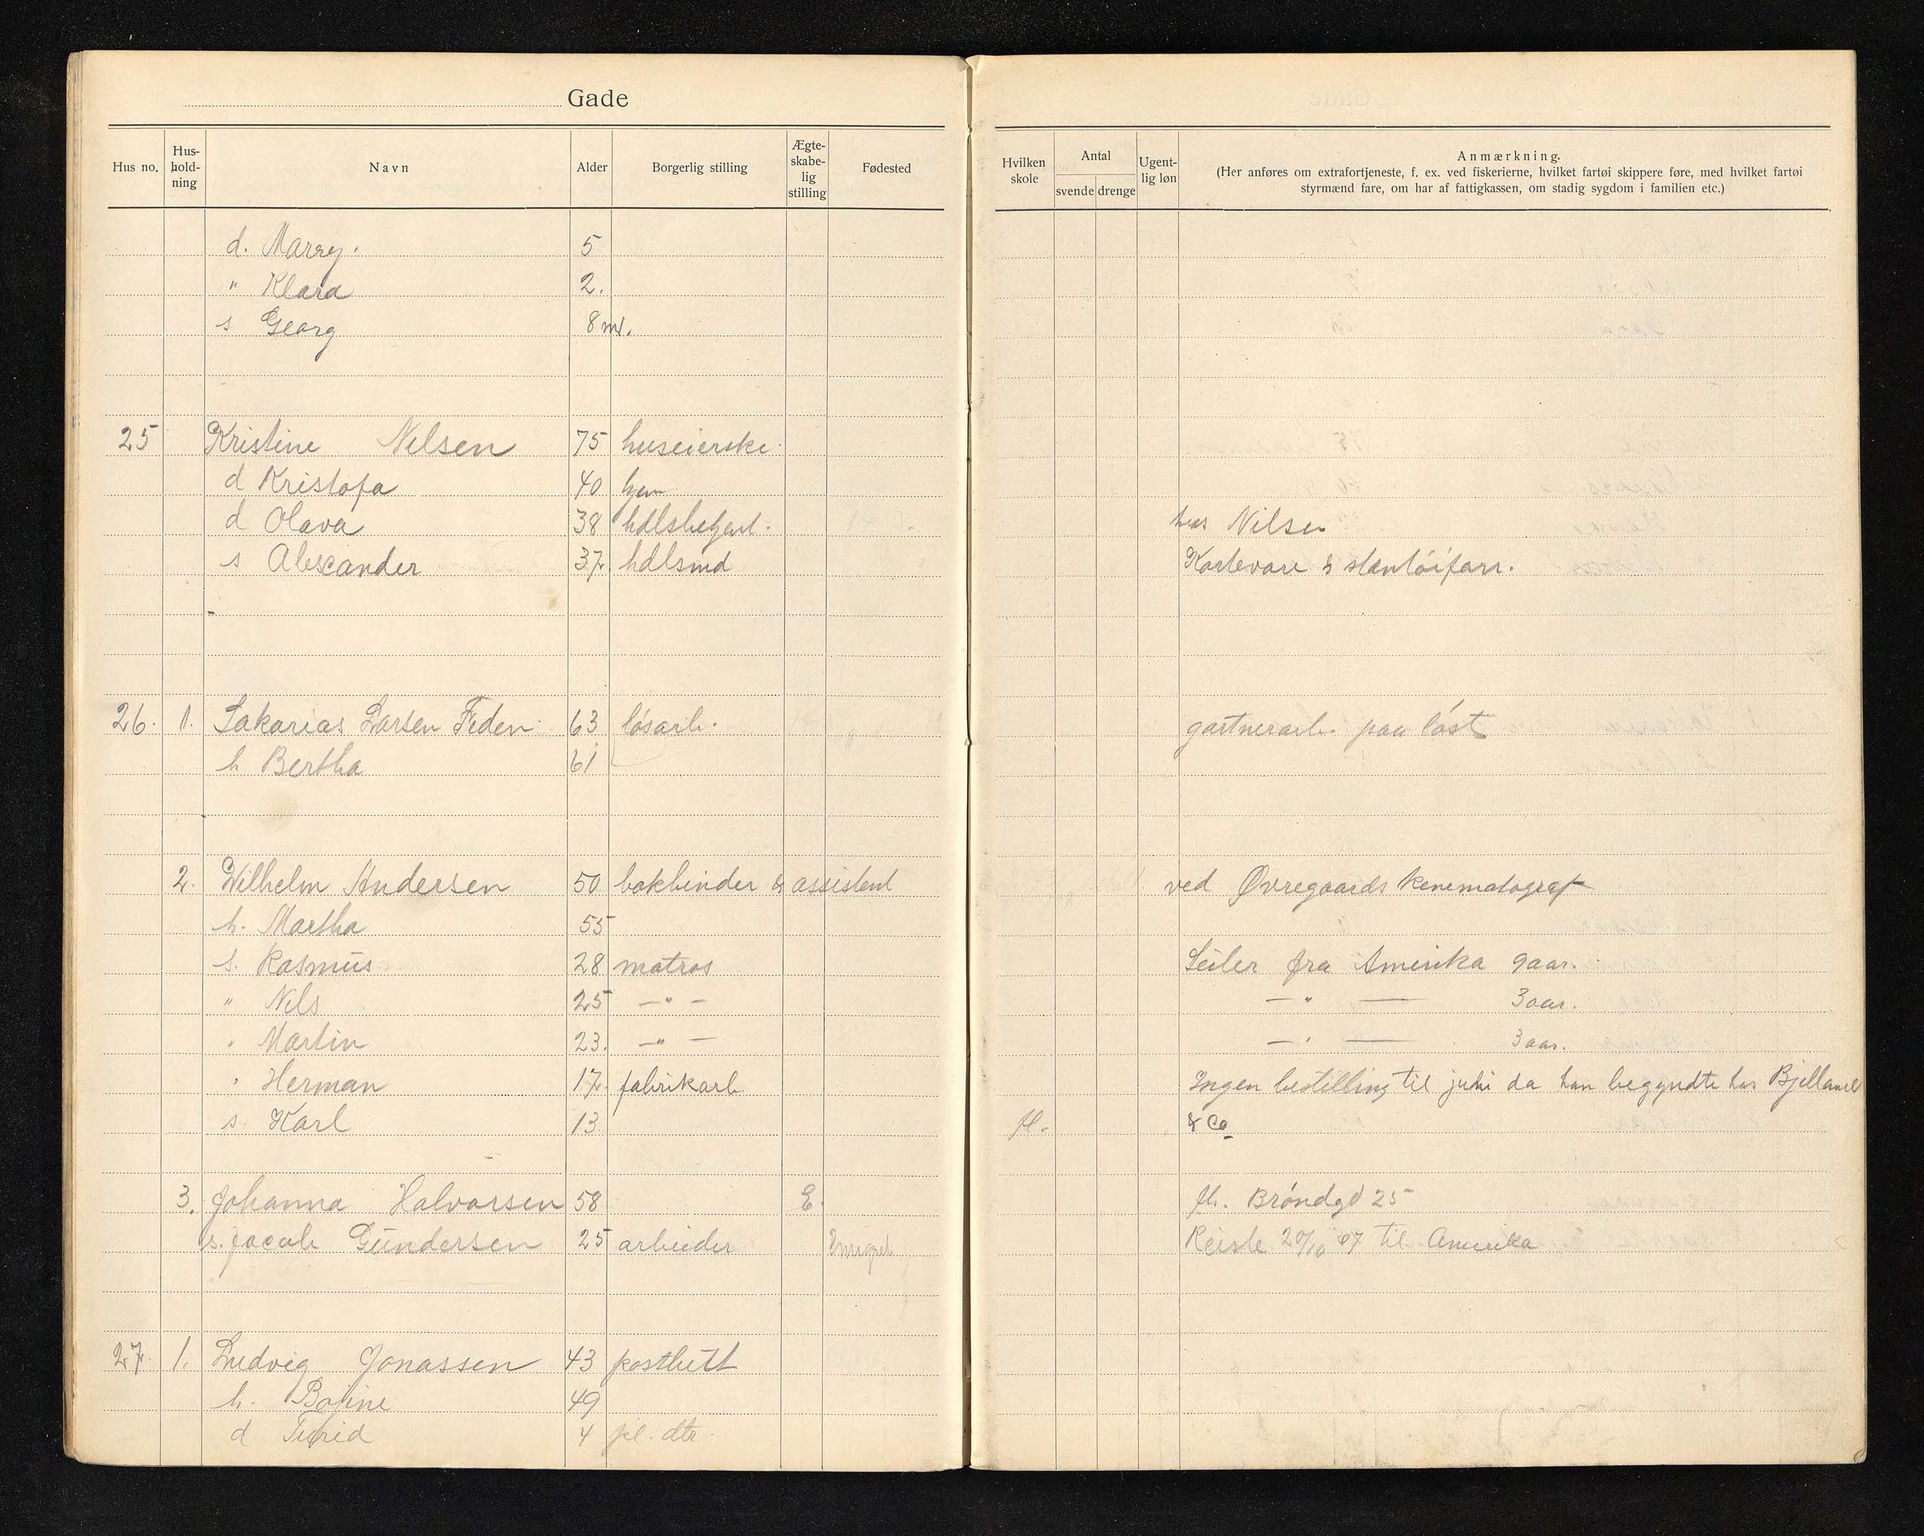 Gade
Hus no. Hus-hold-ning Navn Alder Borgerlig stilling Ægte-skabe-lig stilling Fødested
Hvilken skole Antal svende drenge Ugent-lig løn Anmærkning.
(Her anføres om extrafortjeneste, f. ex. ved fiskerierne, hvilket fartøi skippere føre, med hvilket fartøi
styrmænd fare, om har af fattigkassen, om stadig sygdom i familien etc.)
d. Marry. 5
" Klara 2.
s Georg 8 m.
25 Kristine Nilsen 75 huseierske
d Kristofa 40 hjem
d Olava 38 hdlsbetjent. hos Nilsen
s Alexander 37 hdlsmd Kortevare &
26. 1. Sakarias Larsen Feden 63 løsarb. gartnerarb. paa løst
h Bertha 61
2. Wilhelm Andersen 50 bokbinder & assistent ved Øvregaards kenematograf
h. Martha 55
s. Rasmus 28 matros Seiler fra Amerika 9 aar.
" Nils 25 — " — — " — 3 aar.
" Martin 23. — " — — " — 3 aar.
" Herman 17 fabrikarb Ingen bestilling til juni da han begyndte hos Bjelland
s. Karl 13 & Co
3. Johanna Halvorsen 58 E. fh. Brøndgd 25
s. Jacob Gundersen 25 arbeider Emigret Reiste 20/10 07 til Amerika
27. 1. Ludvig Jonassen 43 postbud
h. Boline 49
d Turid 4 pl. dtr.